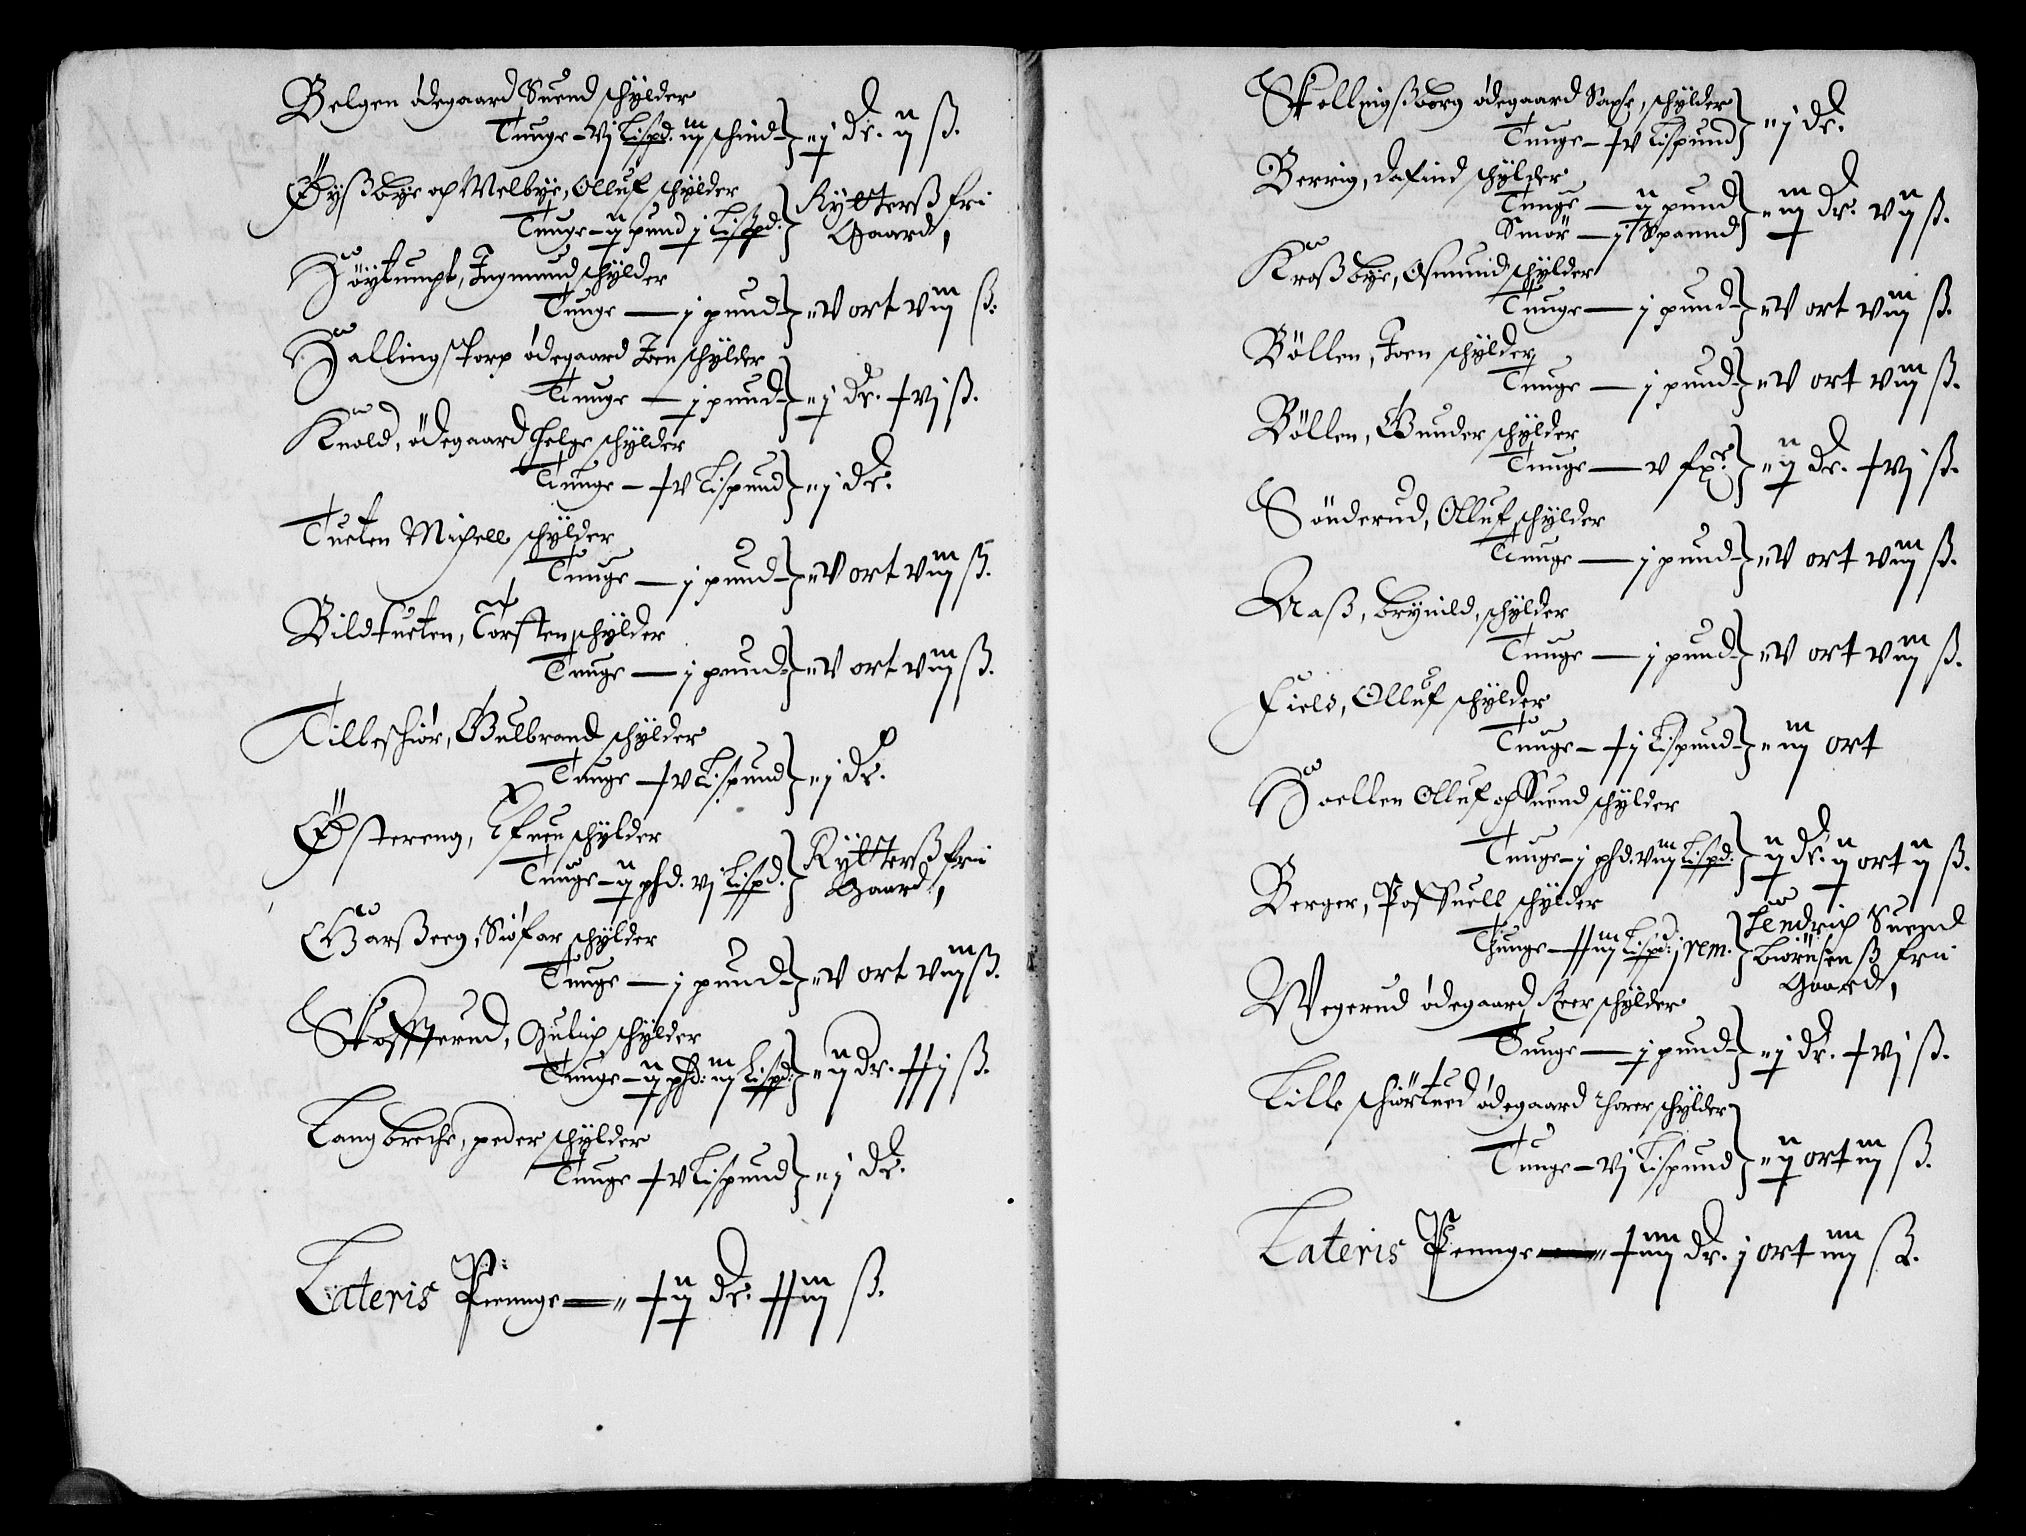 Belgen ødegaard Suend schylder
Tunge – vj Lispd. iij schind – j dr. ij ß.
Øÿßbÿe och Melbÿe, Olluf schylder
Tunge – ij pund j Lißpd. Rÿtterß fri
Gaard,
Höytumpt, Ingmund schylder
Tunge — j pund – V ort viij ß.
Hallingstorp ödegaard Joen schylder
Tunge — j pund – j dr. xvj ß.
Knold, ödegaard Helge schylder
Tunge – xv Lispund j dr.
Tueten Michell schylder
Tunge — j pund – V ort viij ß.
Bildtueten, Torsten schylder
Tunge — j pund – V ort viij ß.
Tilleschiör, Gulbrand schylder
Tunge – xv Lispund j dr.
Østereng, Efuen schylder
Tunge – ij phd. vj Lispd. Rÿtterß frii
Gaard,
Garßeeg, Siöfar schylder
Tunge — j pund – V ort viij ß.
Skofferud, Gulich schylder
Tunge – ij phd: iij Lispd: ij dr. xxj ß.
Langbreche, peder schylder
Tunge xv Lispund j dr.
Lateris Pennge — xij dr. xxiij ß.
Skellingßborg ødegaard Saxe, schylder
Tunge – xv Lispund j dr.
Berrig, Dafind schylder
Tunge — ij pund
Smör — j Spannd iij dr. vij ß.
Kroßbÿe, Osmund schylder
Tunge — j pund – V ort viij ß.
Böllen, Joen schylder
Tunge — j pund – V ort viij ß.
Böllen, Gunder schylder
Tunge — v fxr. ij dr. xvj ß.
Sönderud, Olluf schylder
Tunge — j pund – V ort viij ß.
Aaß, Brÿnild, schylder
Tunge — j pund – V ort viij ß.
Field, Olluf schylder
Tunge – xj Lispund – iij ort
Hoellen Olluf och Suend schylder
Tunge – j phd. viij Lispd: ij dr. ij ort ij ß.
Berger, Poffuell schylder
Tunge – xxiij Lispd: j rem. Hendrich Suend
Biörnsenß frii
Gaard,
Wegerud ødegaard Aeer schylder
Tunge — j pund – j dr. xvj ß.
Lille schiörtued ødegaard Thorer schylder
Tunge – vj Lispund ij ort iij ß.
Lateris Pennge — xiiij dr. j ort iiij ß.